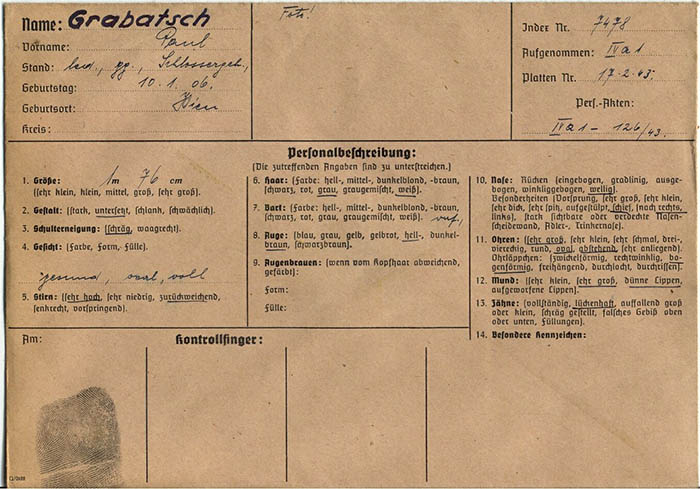 Name: Grabatsch
Vorname: Paul
Stand: led., gg., Schlosserget.,
Geburtstag: 10. 1. 06.
Geburtsort: Wien
Kreis:
Foto!
Index Nr. 7478
Aufgenommen: IV a 1
Platten Nr. 17. 2. 43.
Pers.-Akten:
IV a 1 - 126/43.
Personalbeschreibung:
(Die zutreffenden Angaben sind zu unterstreichen.)
1. Größe: 1 m 76 cm
(sehr klein, klein, mittel, groß, sehr groß).
2. Gestalt: (stark, untersetzt, schlank, schwächlich).
3. Schulterneigung: (schräg, waagrecht).
4. Gesicht: (Farbe, Form, Fülle).
gesund, oval, voll
5. Stirn: (sehr hoch, sehr niedrig, zurückweichend,
senkrecht, vorspringend).
6. Haar: (Farbe: hell-, mittel-, dunkelblond, -braun,
schwarz, rot, grau, graugemischt, weiß).
7. Bart: (Farbe: hell-, mittel-, dunkelblond, -braun,
schwarz, rot, grau, graugemischt, weiß).
8. Auge: (blau, grau, gelb, gelbrot, hell-, dunkel-
braun, schwarzbraun).
9. Augenbrauen: (wenn vom Kopfhaar abweichend,
gefärbt):
Form:
Fülle:
10. Nase: Rücken (eingebogen, gradlinig, ausge-
bogen, winkliggebogen, wellig).
Besonderheiten (Vorsprung, sehr groß, sehr klein,
sehr dick, sehr spitz, aufgestülpt, schief, (nach rechts,
links), stark sichtbare oder verdeckte Nasen-
scheidewand, Adler-, Trinkernase).
11. Ohren: (sehr groß, sehr klein, sehr schmal, drei-,
viereckig, rund, oval, abstehend, sehr anliegend).
Ohrläppchen: (zwickelförmig, rechtwinklig, bo-
genförmig, freihängend, durchlocht, durchrissen).
12. Mund: (sehr klein, sehr groß, dünne Lippen,
aufgeworfene Lippen).
13. Zähne: (vollständig, lückenhaft, auffallend groß
oder klein, schräg gestellt, falsches Gebiß oben
oder unten, Füllungen).
14. Besondere Kennzeichen:
Am:
Kontrollfinger: